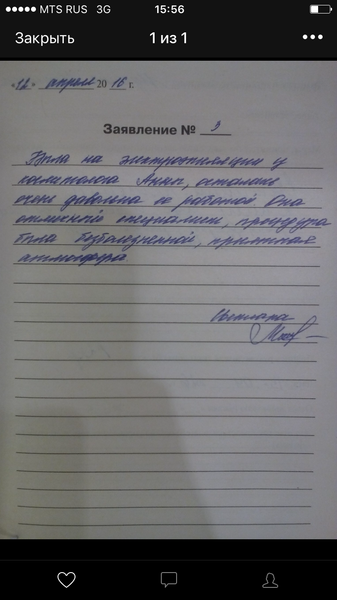 MTS RUS 3G 15:56
Закрыть 1 из 1
«12» апреля 2016 г.
Заявление № 3
Была на электроэпиляции у
косметолога Анны, осталась
очень довольна ее работой. Она
отличный специалист, процедура
была безболезненной, приятная
атмосфера.
Светлана